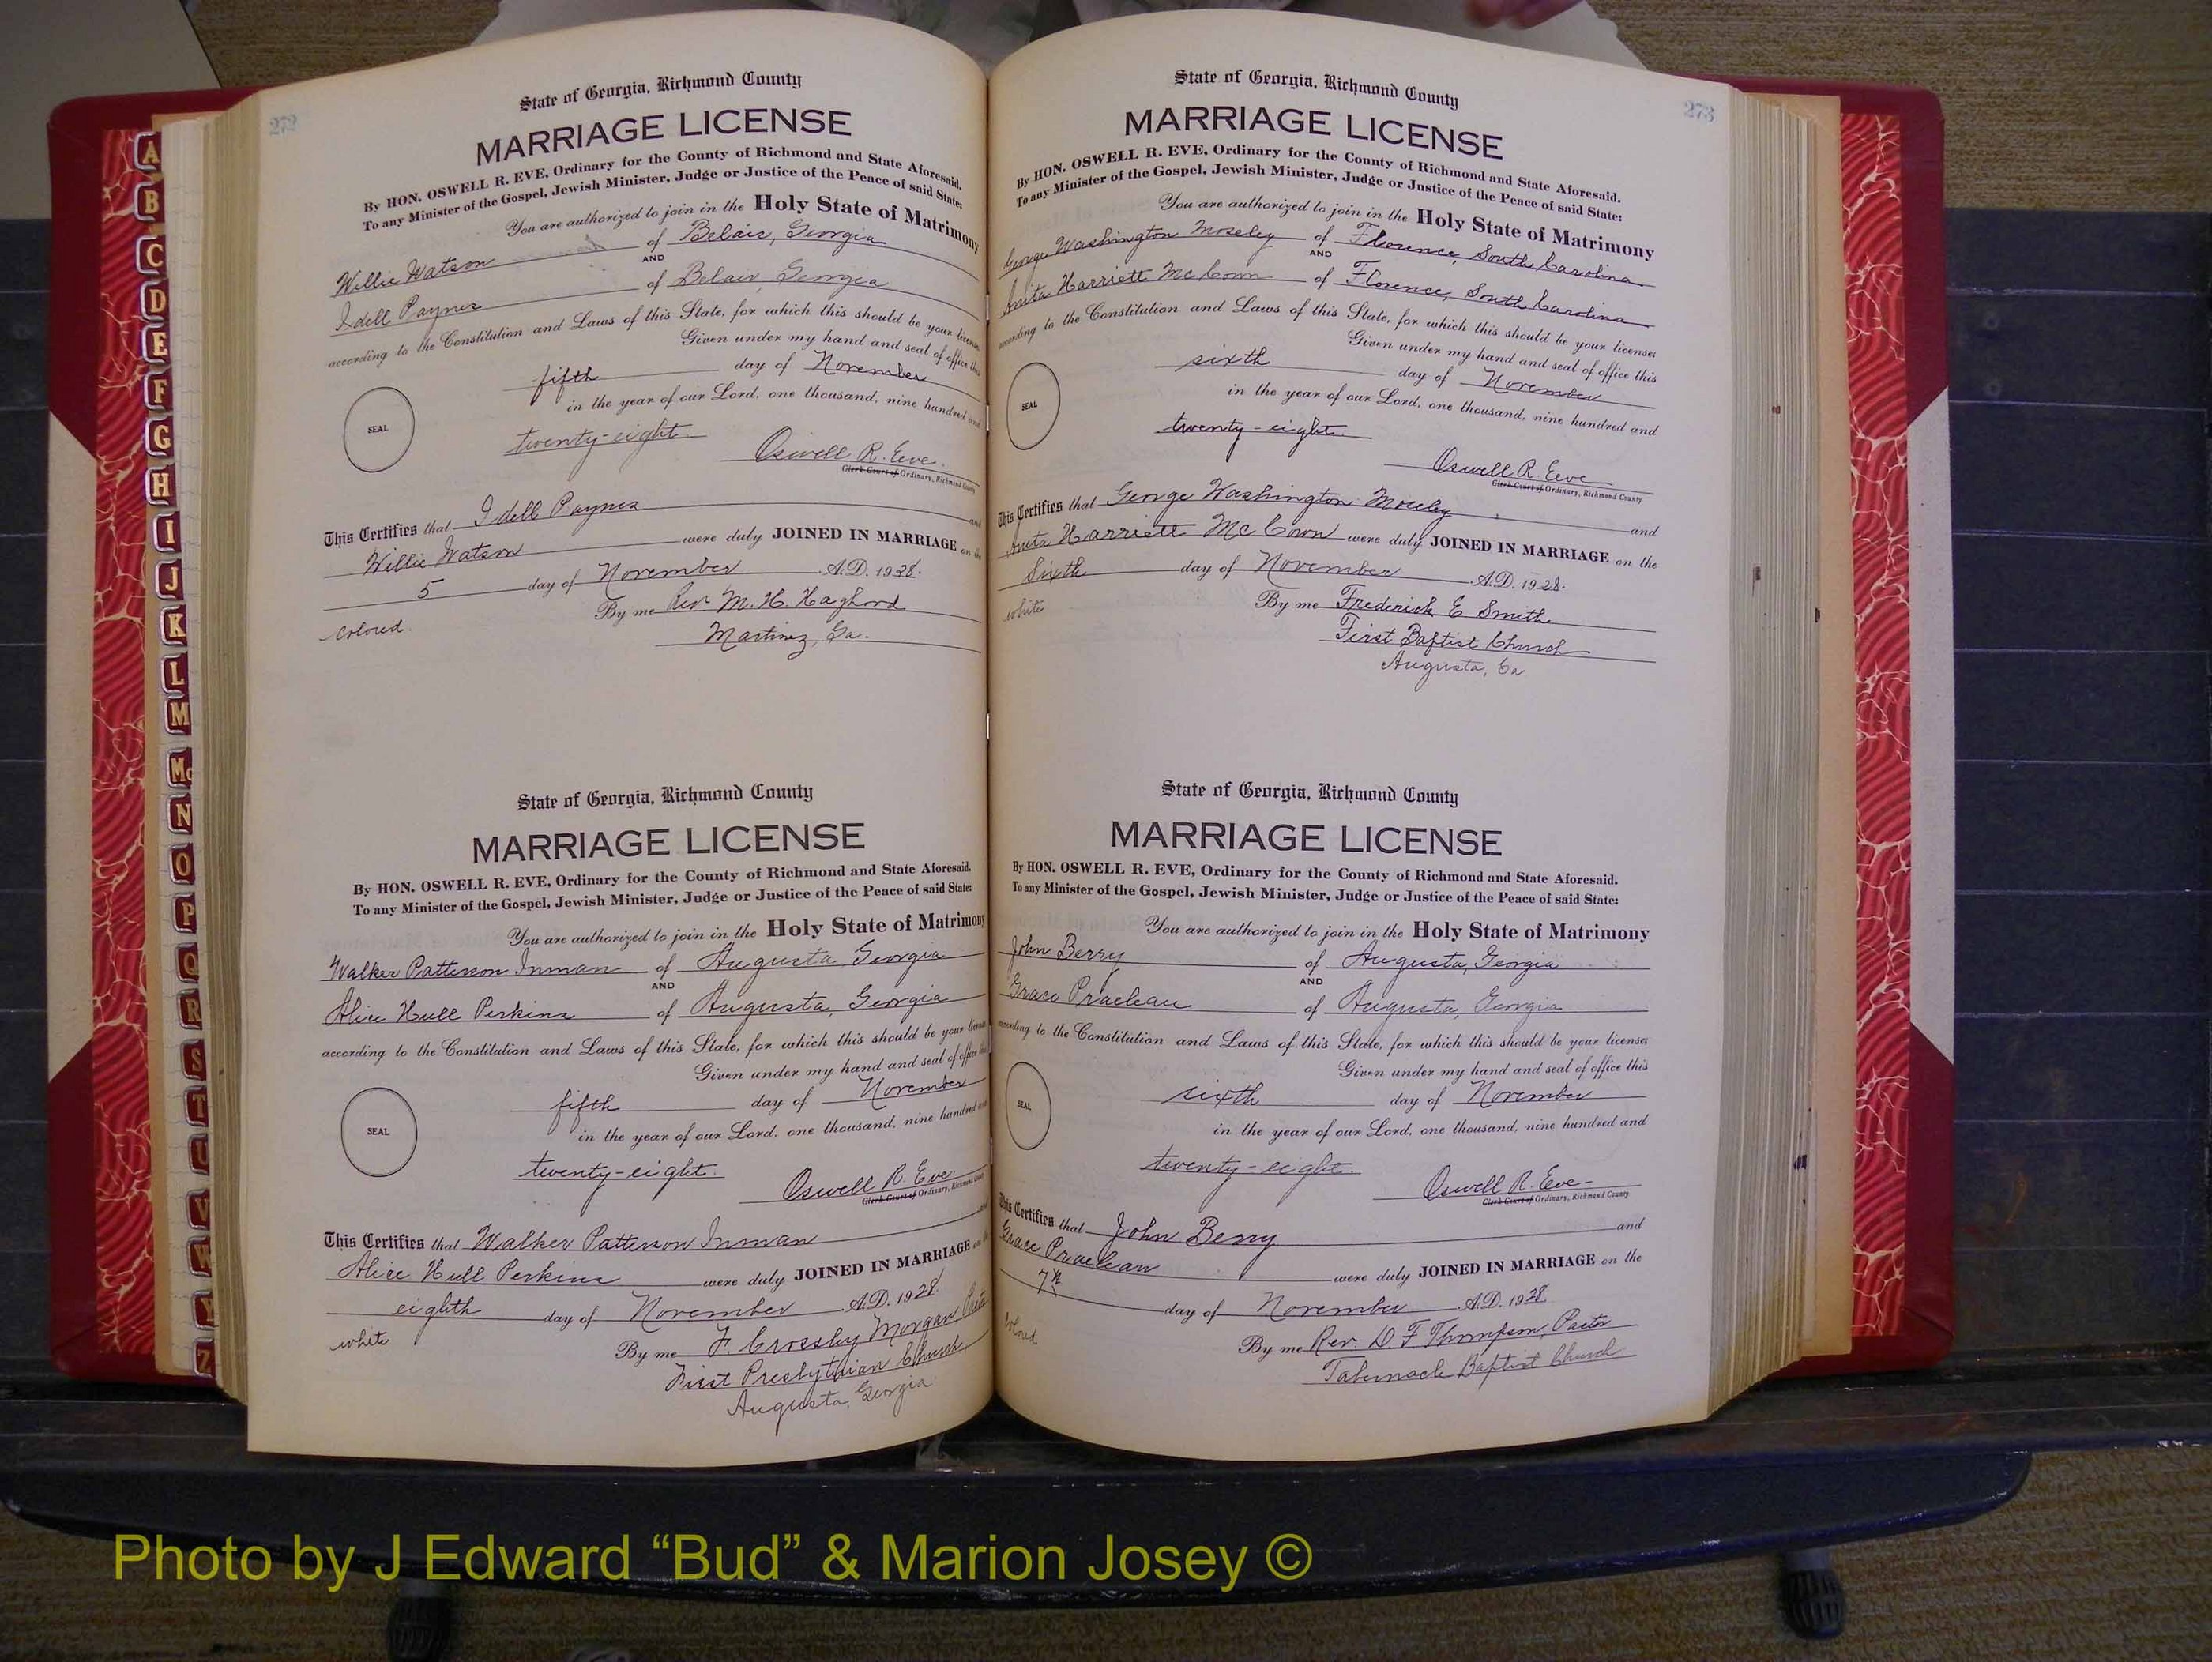 272
State of Georgia, Richmond County
MARRIAGE LICENSE
By HON. OSWELL R. EVE, Ordinary for the County of Richmond and State Aforesaid.
To any Minister of the Gospel, Jewish Minister, Judge or Justice of the Peace of said State:
You are authorized to join in the Holy State of Matrimony
Willie Watson of Belair, Georgia
AND
Idell Paynes of Belair, Georgia
according to the Constitution and Laws of this State, for which this should be your license
Given under my hand and seal of office this
fifth day of November
in the year of our Lord, one thousand, nine hundred and
SEAL
twenty-eight.
Oswell R. Eve.
Clerk Court of Ordinary, Richmond County
This Certifies that Idell Paynes and
Willie Watson were duly JOINED IN MARRIAGE on the
5 day of November A.D. 1928.
colored. By me Rev M. H.
Martinez, Ga.
State of Georgia, Richmond County
MARRIAGE LICENSE
By HON. OSWELL R. EVE, Ordinary for the County of Richmond and State Aforesaid.
To any Minister of the Gospel, Jewish Minister, Judge or Justice of the Peace of said State:
You are authorized to join in the Holy State of Matrimony
Walker Patterson Inman of Augusta Georgia
AND
Alice Hull Perkins of Augusta, Georgia
according to the Constitution and Laws of this State, for which this should be your license
Given under my hand and seal of office this
fifth day of November
in the year of our Lord, one thousand, nine hundred and
SEAL
twenty-eight.
Oswell R. Eve
Clerk Court of Ordinary, Richmond County
This Certifies that Walker Patterson Inman and
Alice Hull Perkins were duly JOINED IN MARRIAGE on the
eighth day of November A.D. 1928.
white By me F. Crossley Morgan
First Presbyterian Church,
Augusta, Georgia
273
State of Georgia, Richmond County
MARRIAGE LICENSE
By HON. OSWELL R. EVE, Ordinary for the County of Richmond and State Aforesaid.
To any Minister of the Gospel, Jewish Minister, Judge or Justice of the Peace of said State:
You are authorized to join in the Holy State of Matrimony
George Washington Moseley of Florence, South Carolina
AND
Anita Harriett McCown of Florence, South Carolina
according to the Constitution and Laws of this State, for which this should be your licenses
Given under my hand and seal of office this
sixth day of November
in the year of our Lord, one thousand, nine hundred and
SEAL
twenty-eight.
Oswell R. Eve
Clerk Court of Ordinary, Richmond County
This Certifies that George Washington Moseley and
Anita Harriett McCown were duly JOINED IN MARRIAGE on the
Sixth day of November A.D. 1928.
white By me Frederick E Smith
First Baptist Church
Augusta, Ga
State of Georgia, Richmond County
MARRIAGE LICENSE
By HON. OSWELL R. EVE, Ordinary for the County of Richmond and State Aforesaid.
To any Minister of the Gospel, Jewish Minister, Judge or Justice of the Peace of said State:
You are authorized to join in the Holy State of Matrimony
John Berry of Augusta, Georgia
AND
Grace of Augusta, Georgia
according to the Constitution and Laws of this State, for which this should be your licenses
Given under my hand and seal of office this
sixth day of November
in the year of our Lord, one thousand, nine hundred and
SEAL
twenty-eight.
Oswell R. Eve
Clerk Court of Ordinary, Richmond County
This Certifies that John Berry and
Grace were duly JOINED IN MARRIAGE on the
7th day of November A.D. 1928
colored By me Rev. D. F. Thompson, Pastor
Tabernacle Baptist Church
A
B
C
D
E
F
G
H
I
J
K
L
M
Mc
N
O
P
Q
R
S
T
U
V
W
Y
Z
Photo by J Edward “Bud” & Marion Josey ©